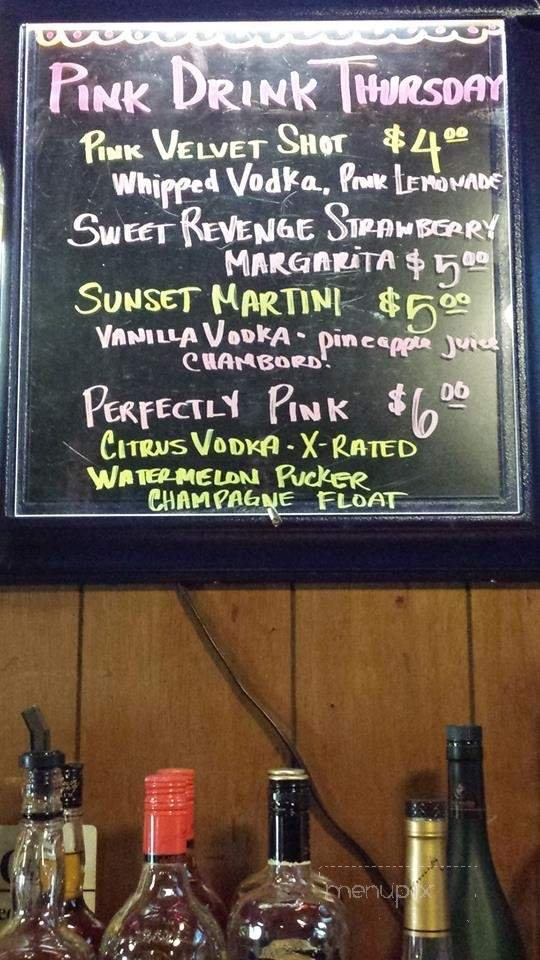 PINK DRINK THURSDAY
PINK VELVET SHOT $4.00
Whipped Vodka, PINK LEMONADE
SWEET REVENGE STRAWBERRY
MARGARITA $5.00
SUNSET MARTINI $5.00
VANILLA VODKA - pineapple juice
CHAMBORD.
PERFECTLY PINK $6.00
CITRUS VODKA - X-RATED
WATERMELON PUCKER
CHAMPAGNE FLOAT
menupix